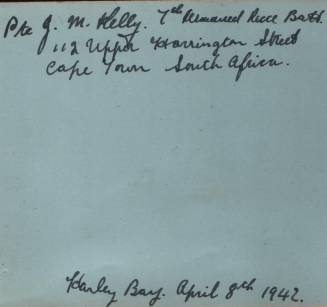 Pte J. M. Kelly. 7th Armoured Recce Batt.
112 Upper Harrington Street
Cape Town South Africa.
Harley Bay. April 8th 1942.